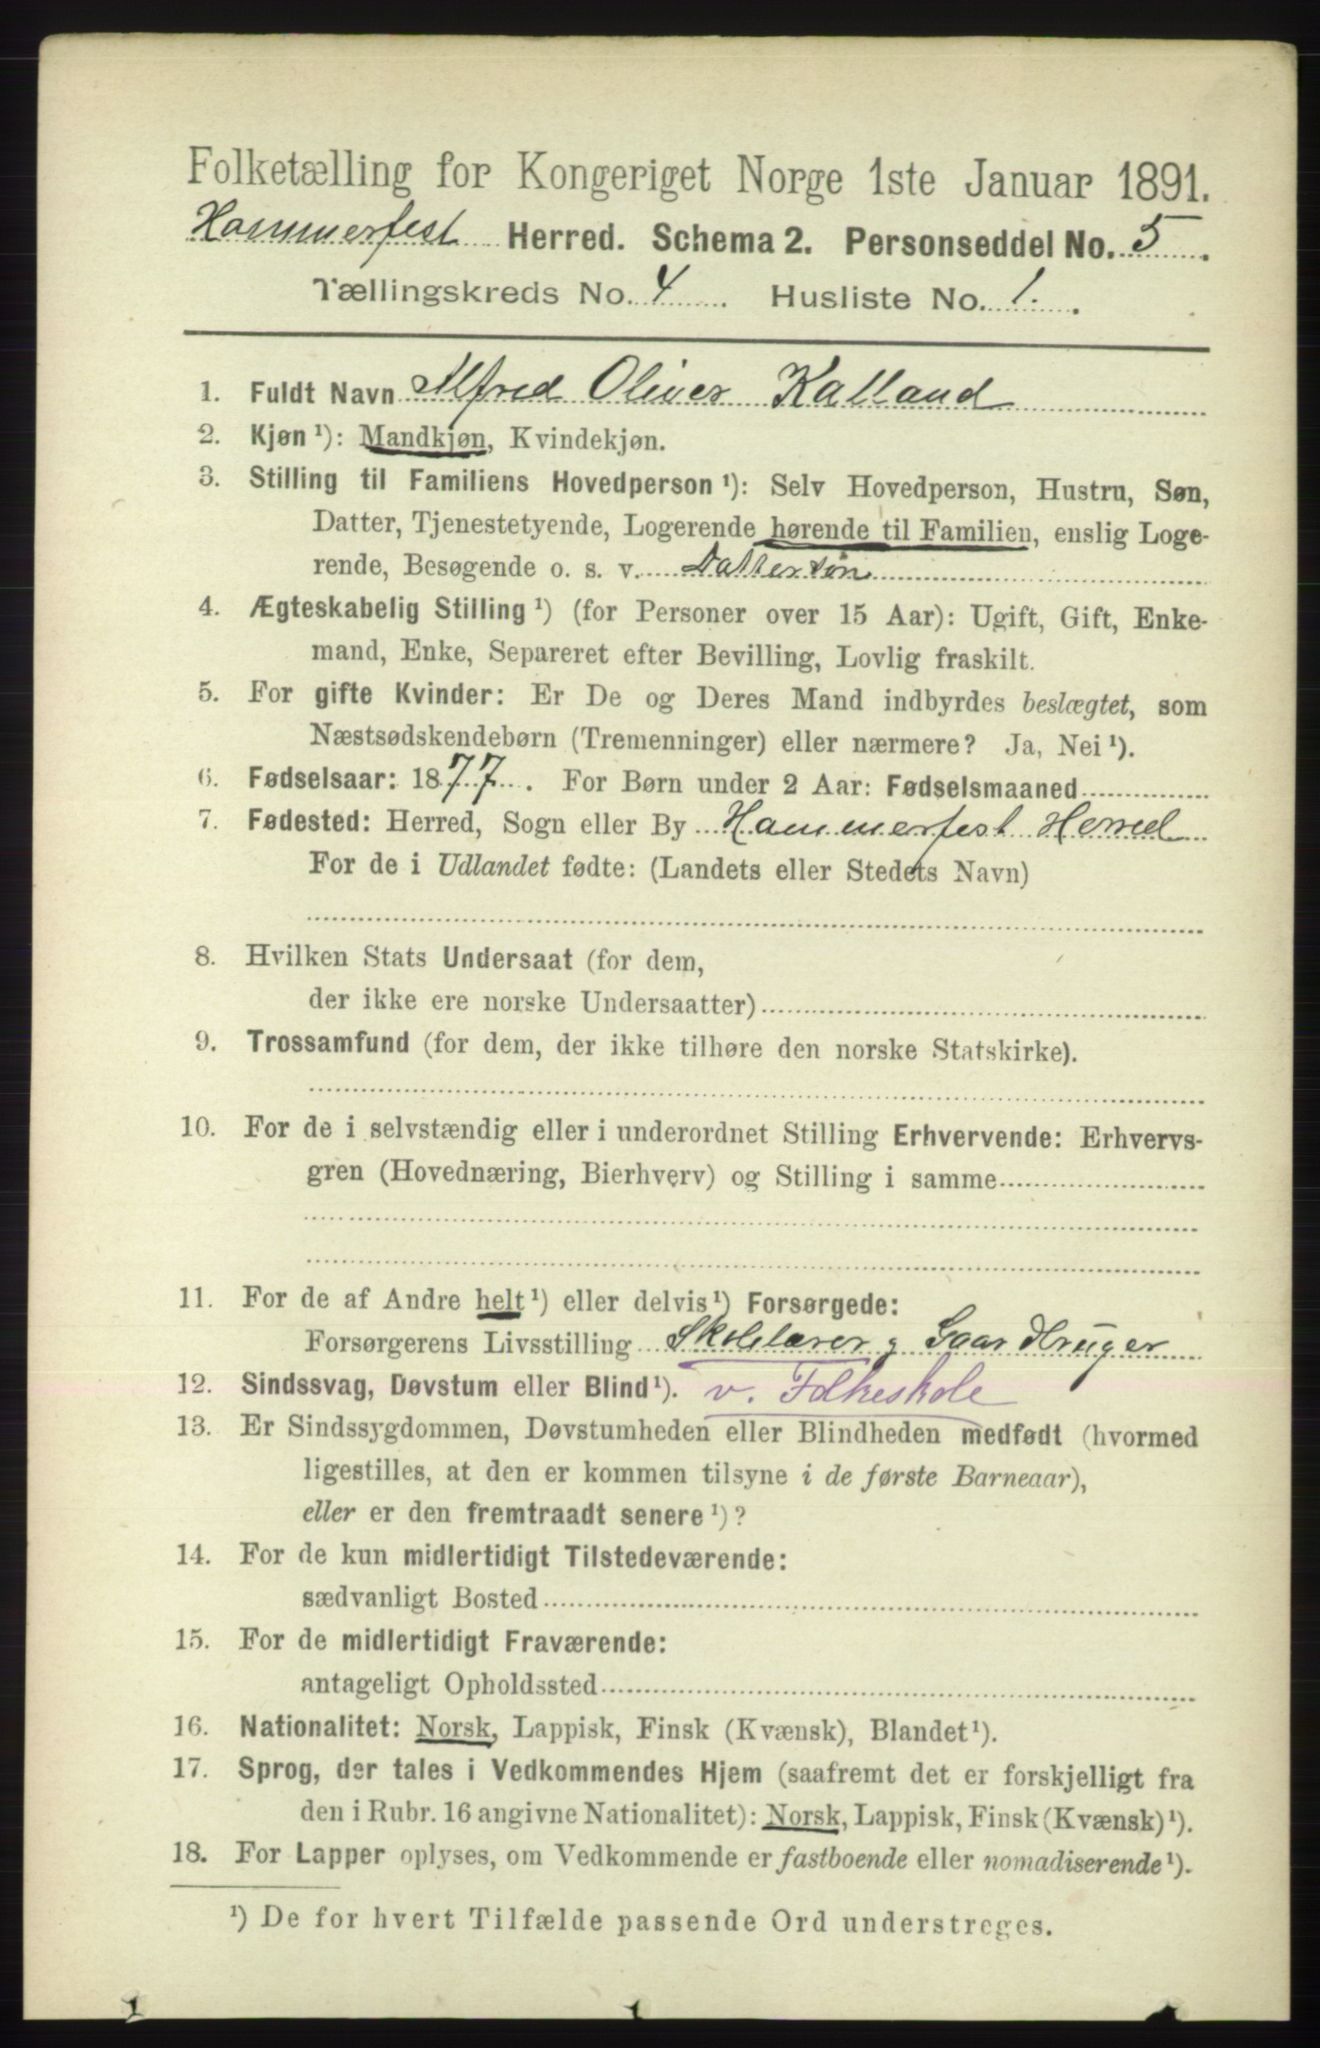 Folketælling for Kongeriget Norge 1ste Januar 1891.
Hammerfest Herred. Schema 2. Personseddel No. 5.
Tællingskreds No. 4. Husliste No. 1.
1. Fuldt Navn Alfred Oliver Kalland
2. Kjøn ¹): Mandkjøn, Kvindekjøn.
3. Stilling til Familiens Hovedperson ¹): Selv Hovedperson, Hustru, Søn,
Datter, Tjenestetyende, Logerende hørende til Familien, enslig Loge-
rende, Besøgende o. s. v. Dattersøn
4. Ægteskabelig Stilling ¹) (for Personer over 15 Aar): Ugift, Gift, Enke-
mand, Enke, Separeret efter Bevilling, Lovlig fraskilt.
5. For gifte Kvinder: Er De og Deres Mand indbyrdes beslægtet, som
Næstsødskendebørn (Tremenninger) eller nærmere? Ja, Nei ¹).
6. Fødselsaar: 1877. For Børn under 2 Aar: Fødselsmaaned
7. Fødested: Herred, Sogn eller By Hammerfest Herred
For de i Udlandet fødte: (Landets eller Stedets Navn)
8. Hvilken Stats Undersaat (for dem,
der ikke ere norske Undersaatter)
9. Trossamfund (for dem, der ikke tilhøre den norske Statskirke).
10. For de i selvstændig eller i underordnet Stilling Erhvervende: Erhvervs-
gren (Hovednæring, Bierhverv) og Stilling i samme
11. For de af Andre helt ¹) eller delvis ¹) Forsørgede:
Forsørgerens Livsstilling Skolelærer g Gaardbruger
12. Sindssvag, Døvstum eller Blind ¹). v. Folkeskole
13. Er Sindssygdommen, Døvstumheden eller Blindheden medfødt (hvormed
ligestilles, at den er kommen tilsyne i de første Barneaar),
eller er den fremtraadt senere ¹)?
14. For de kun midlertidigt Tilstedeværende:
sædvanligt Bosted
15. For de midlertidigt Fraværende:
antageligt Opholdssted
16. Nationalitet: Norsk, Lappisk, Finsk (Kvænsk), Blandet ¹).
17. Sprog, der tales i Vedkommendes Hjem (saafremt det er forskjelligt fra
den i Rubr. 16 angivne Nationalitet): Norsk, Lappisk, Finsk (Kvænsk) ¹).
18. For Lapper oplyses, om Vedkommende er fastboende eller nomadiserende ¹).
¹) De for hvert Tilfælde passende Ord understreges.